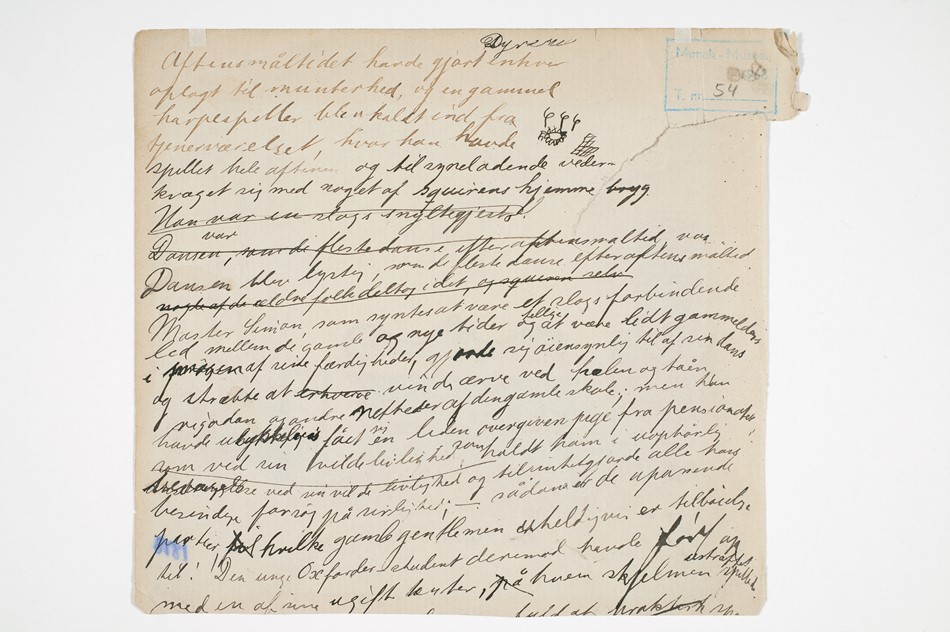 Dyrere
Munch-Museet
T. nr. 54
Aftensmåltidet havde gjort enhver
oplagt til munterhed, og en gammel
harpespiller blev kaldt ind fra
tjenerværelset, hvor han havde
spillet hele aftenen og til syneladende veder-
kvæget sig med noget af squirens hjemmebryg
Han var en slags snyltegjest
Dansen, som de fleste danse efter aftensmåltid, var
var
Dansen blev lystig, som de fleste danse efter aftensmåltid
nogle af de ældre folk deltog i det, og squiren selv
Master Simon, som syntes at være et slags forbindende
led mellem de gamle og nye tider og at være lidt gammeldags
i af sine færdigheder, gjorde sig øiensynlig til af sin dans
og stræbte at erhverve vinde ærve ved hælen og tåen
rigodon og andre netheder af den gamle skole; men han
havde ulykkeligvis fået en liden overgiven pige fra pensionatet,
som ved sin vilde livlighed holdt ham i uophørlig
ved sin vilde livlighed og tilintetgjorde alle hans
besindige forsøg på sirlighed; — sådan er de upassende
partier, hvilke gamle gentlemen uheldigvis er tilbøielige
til! Den unge Oxforder-student derimod havde ført op
med en af sine ugifte tanter, på hvem skjelmen